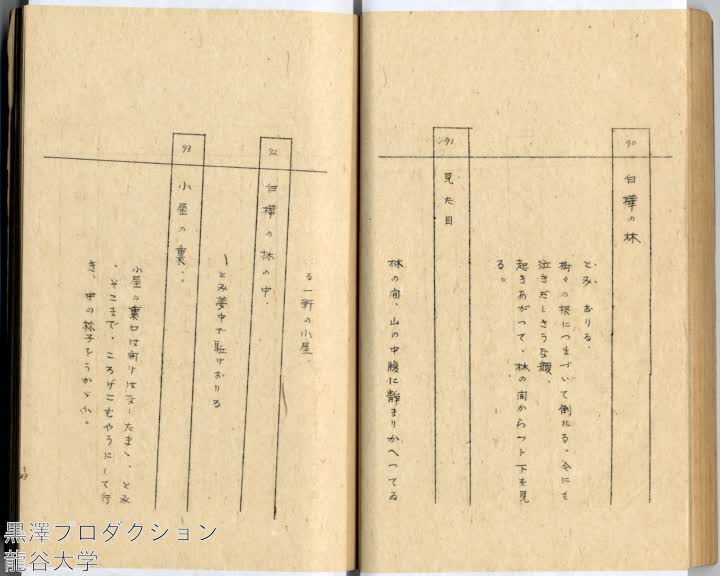 90
白樺の林
とみ おりる、
樹々の根につまづいて倒れる。今にも
泣きだしさうな顔、
起きあがつて、林の間からフト下を見
る。
91
見た目
林の間、山の中腹に静まりかへつてゐ
る一軒の小屋。
92
白樺の林の中、
とみ夢中で駈けおりる
93
小屋の裏、
小屋の裏口は開けはなしたまゝ、とみ
、そこまで、ころげこむやうにして行
き、中の様子をうかゞふ。
黒澤プロダクション
龍谷大学